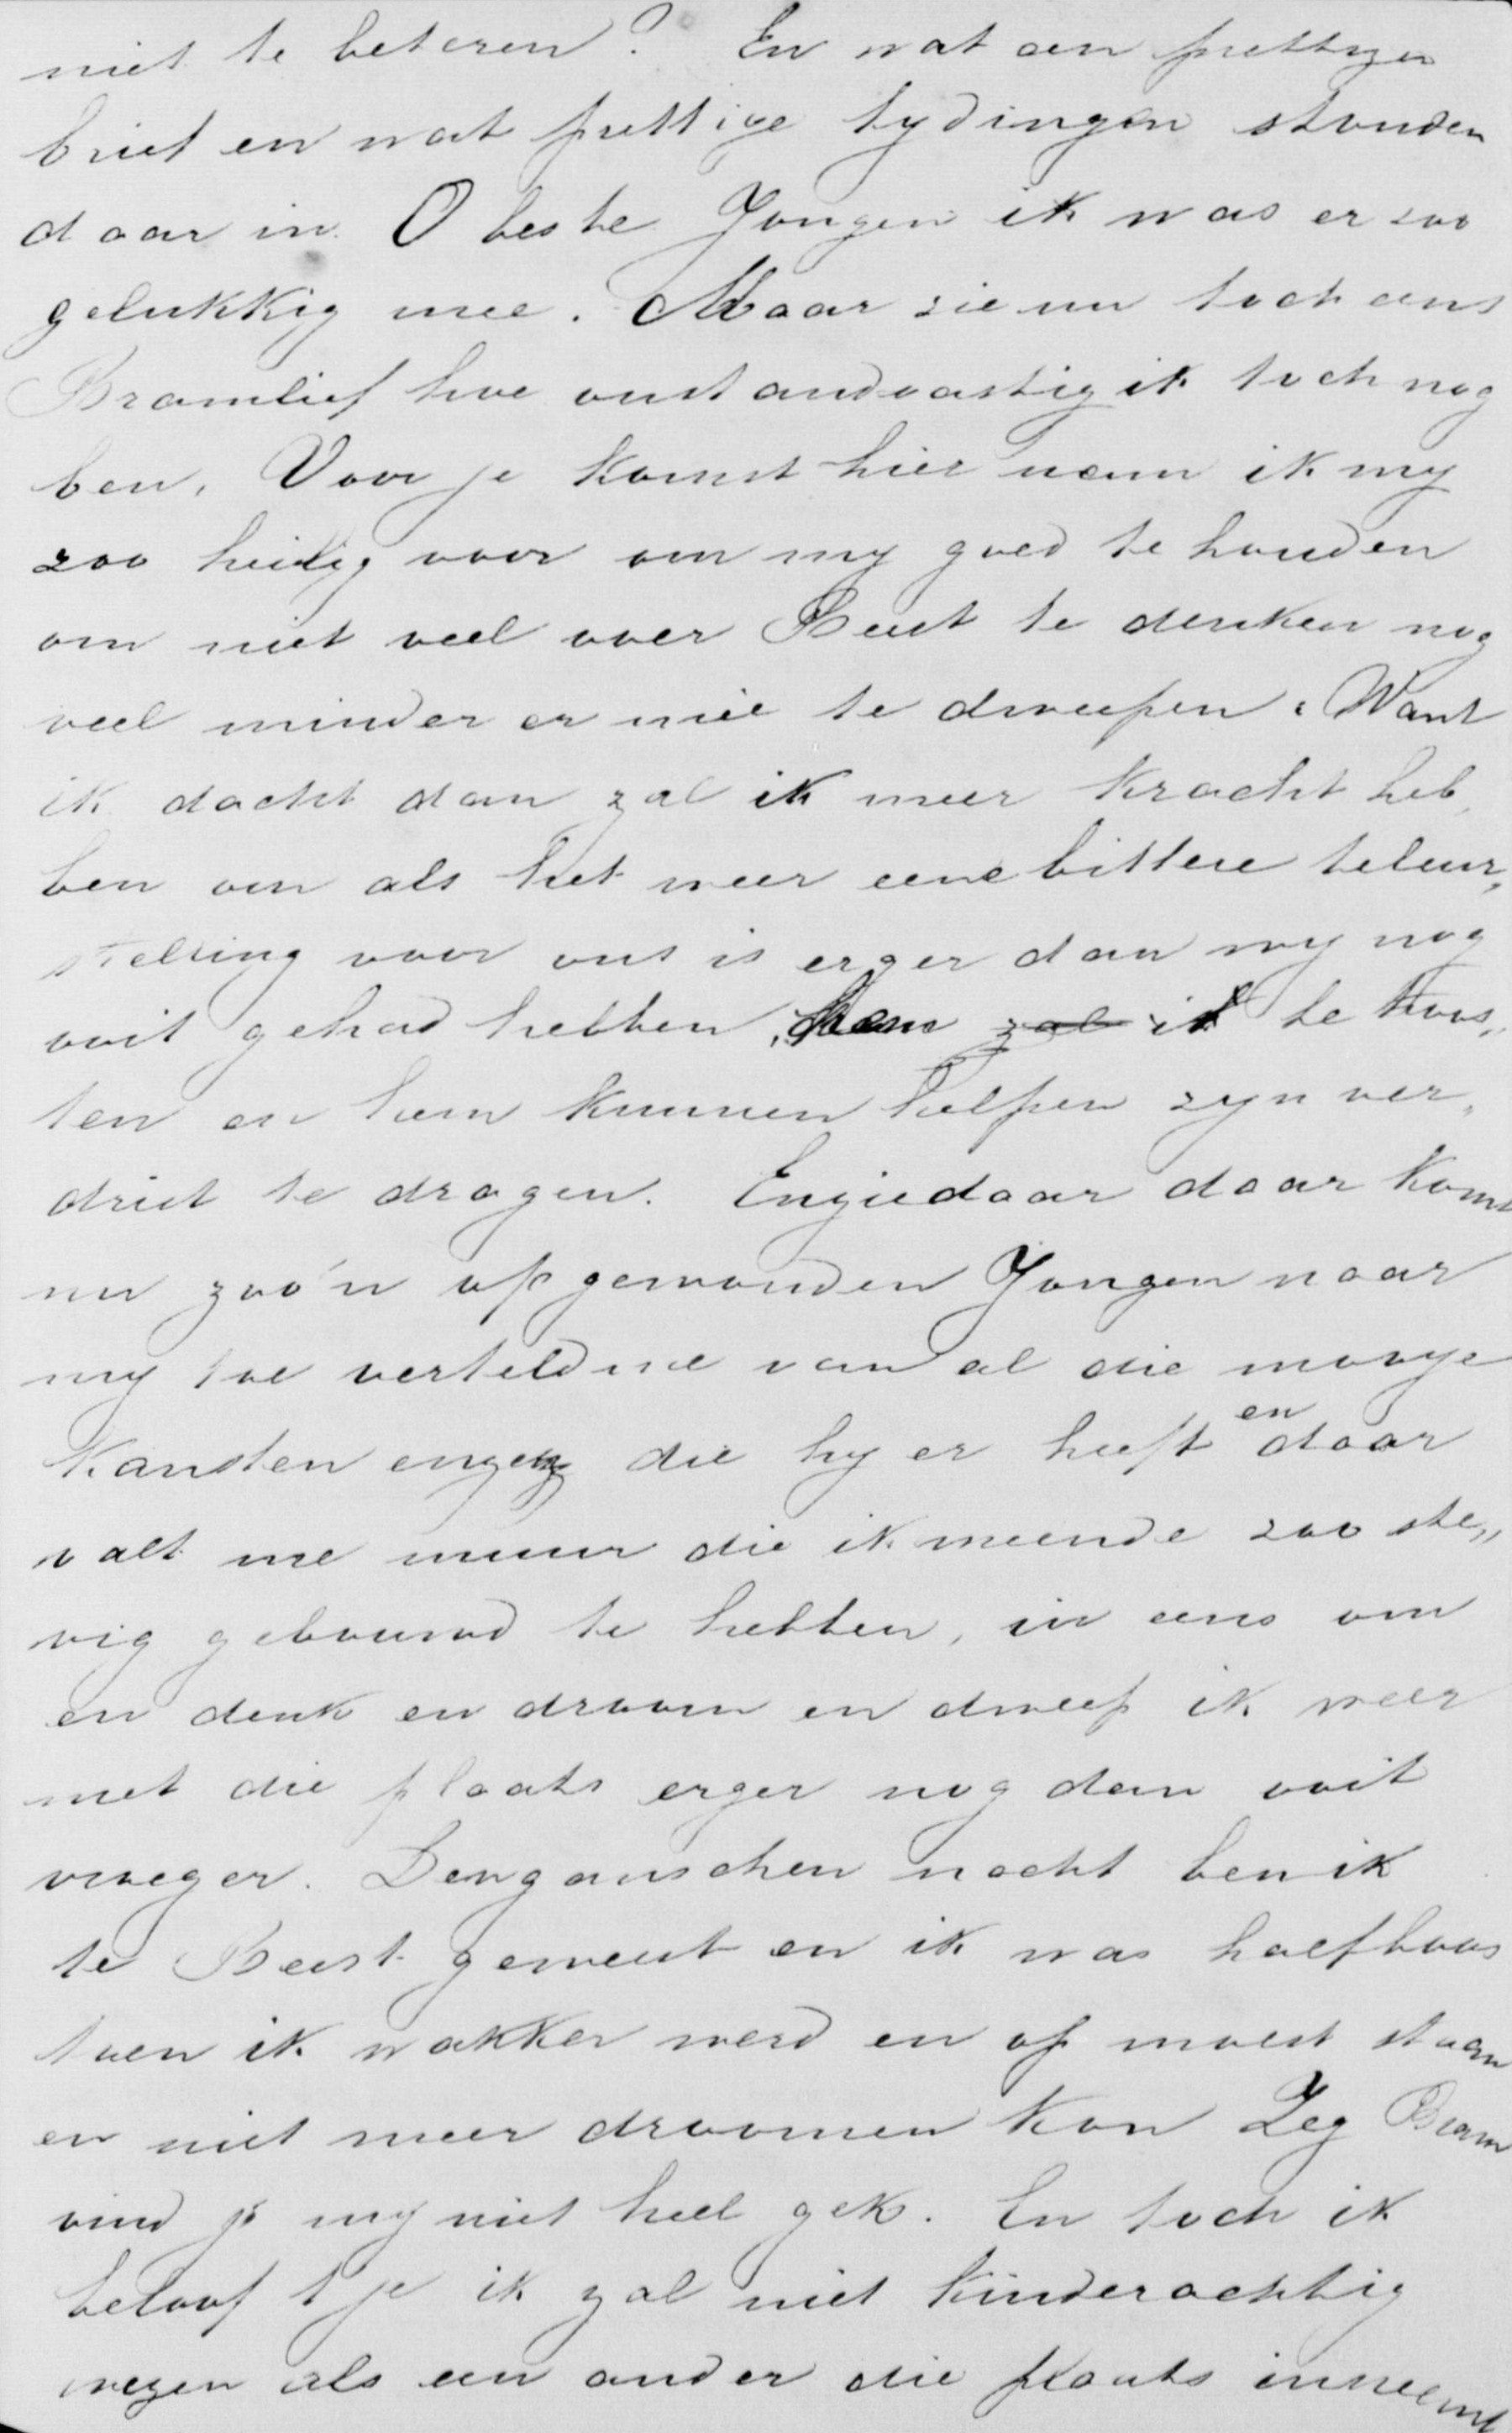 niet te beteren? En wat een prettigen
brief en wat prettige tydingen stonden
daar in. O beste Jongen ik was er zoo
gelukkig mee. Maar zie nu toch eens
Bramlief hoe onstandvastig ik toch nog
ben. Voor je komst hier nam ik my
zoo heilig voor om my goed te houden
om niet veel over Beest te denken nog
veel minder er mie te dweepen. Want
ik dacht dan zal ik meer kracht heb,
ben om als het weer eene bittere teleur,,
stelling voor ons is erger dan wy nog
ooit gehad hebben, hem zal ik te troos,,
ten en hem kunnen helpen zyn ver,,
driet te dragen. Enziedaar daar komt
nu zoo'n opgewonden Jongen naar
my toe verteld me van al die mooye
kansten enzenz die hy er heeft en daar
valt me muur die ik meende zoo ste,,
vig gebouwd te hebben, in eens om
en denk en droom en dweep ik weer
met die plaats erger nog dan ooit
vroeger. Denganschen nacht ben ik
te Beest geweest en ik was half boos
toen ik wakker werd en op moest staan
en niet meer droomen kon Zeg Bram
vind je my niet heel gek. En toch ik
beloof t je ik zal niet kinderachtig
wezen als een ander die plaats inneemt